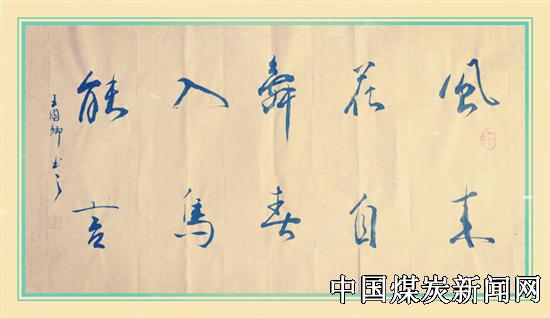 風来
花自
舞春
入鳥
能言
王国卿书
中国煤炭新闻网